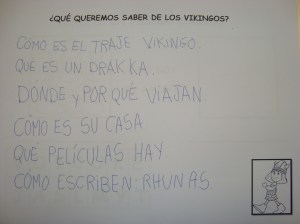 ¿QUÉ QUEREMOS SABER DE LOS VIKINGOS?
CÓMO ES EL TRAJE VIKINGO
QUÉ ES UN DRAKKA
DÓNDE y POR QUÉ VIAJAN
CÓMO ES SU CASA
QUÉ PELÍCULAS HAY
CÓMO ESCRIBEN: RHUNAS